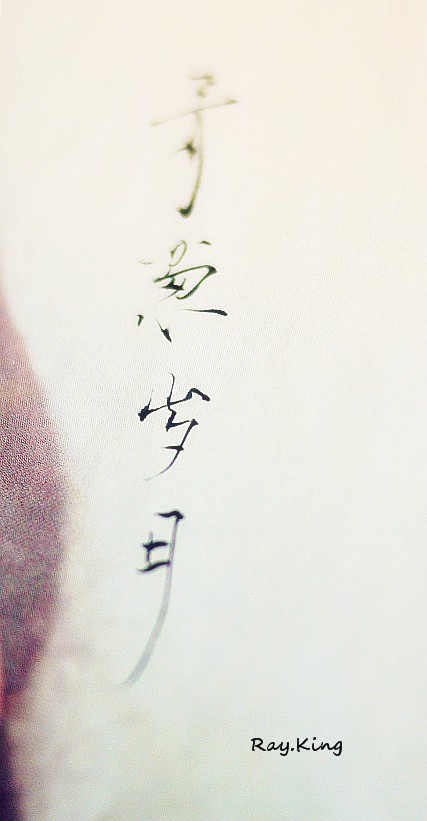 青葱岁月
Ray.King